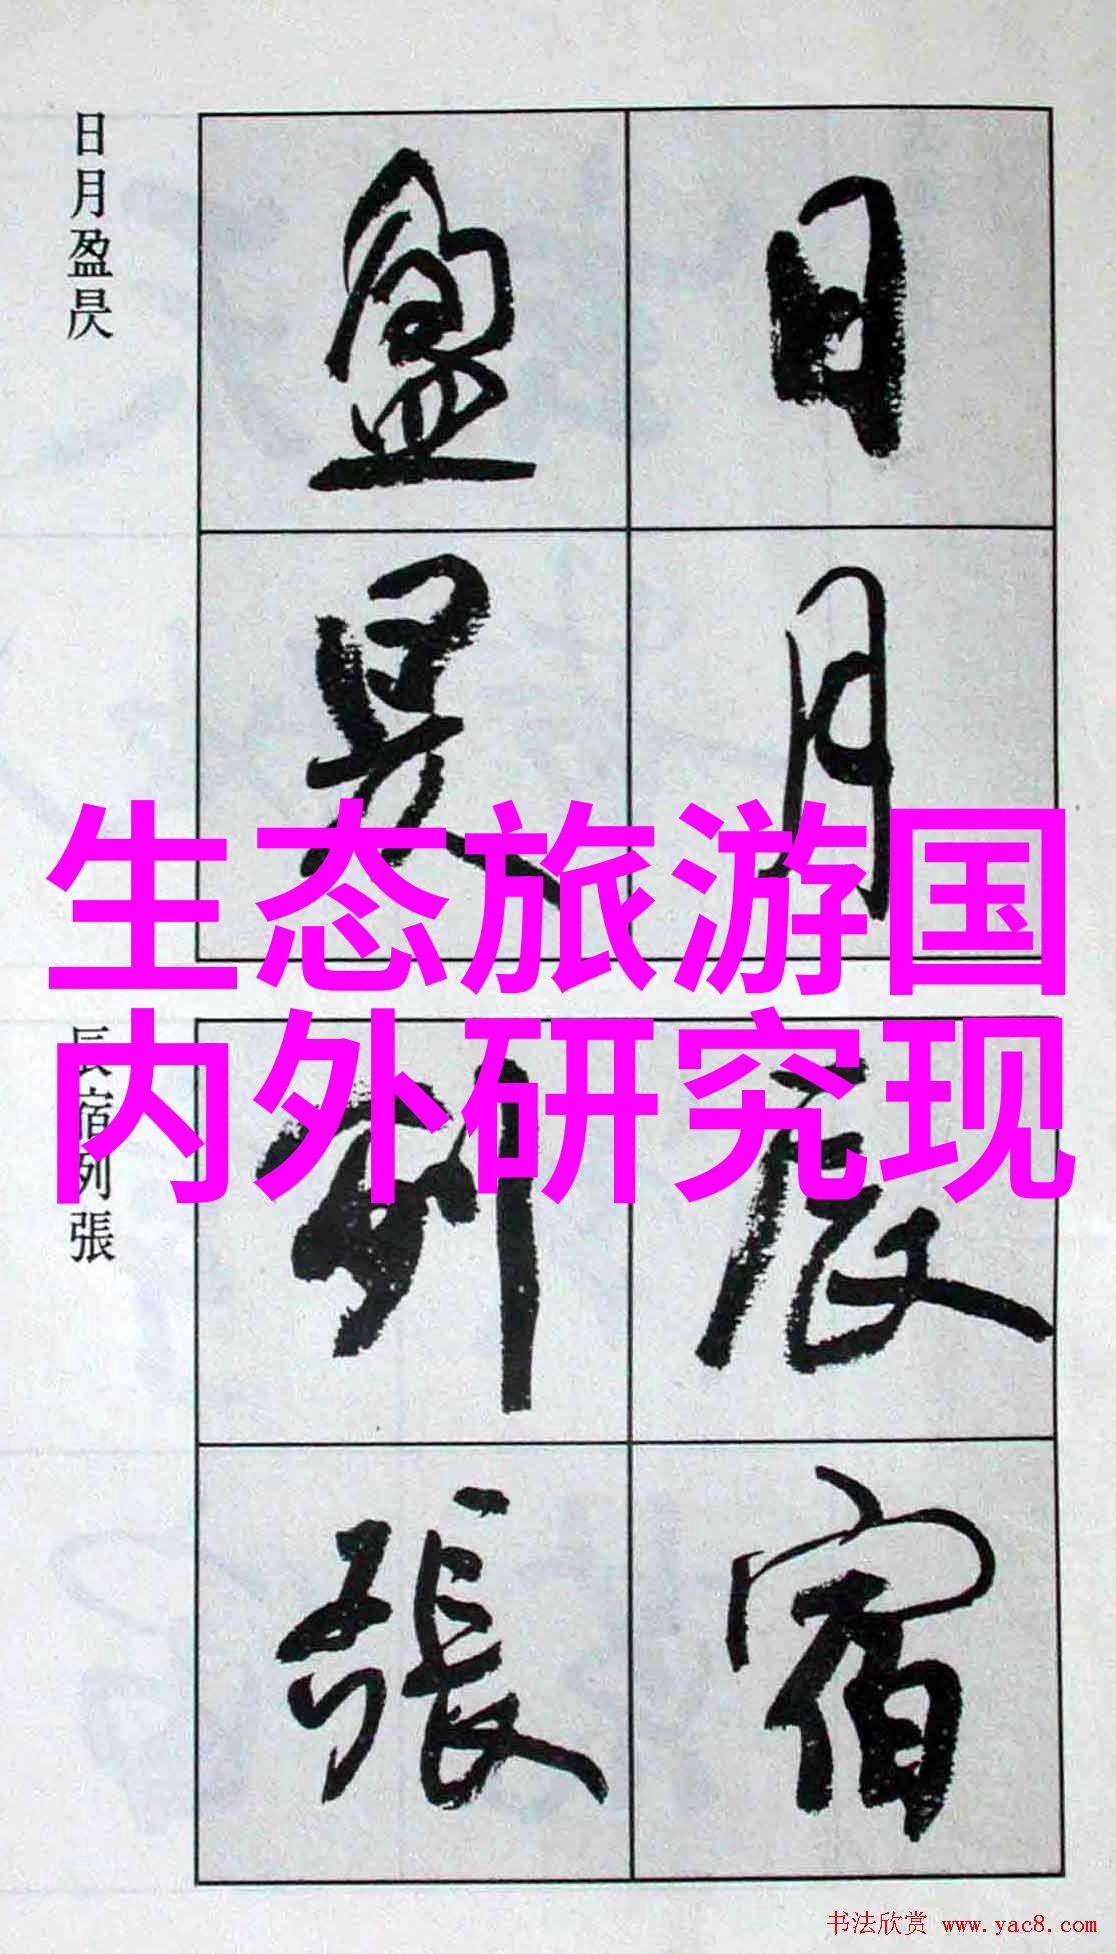 日月
盈昃
日月盈昃
生态旅游国
内外研究现
辰宿
列張
辰宿列張
书法欣赏 www.yac8.com